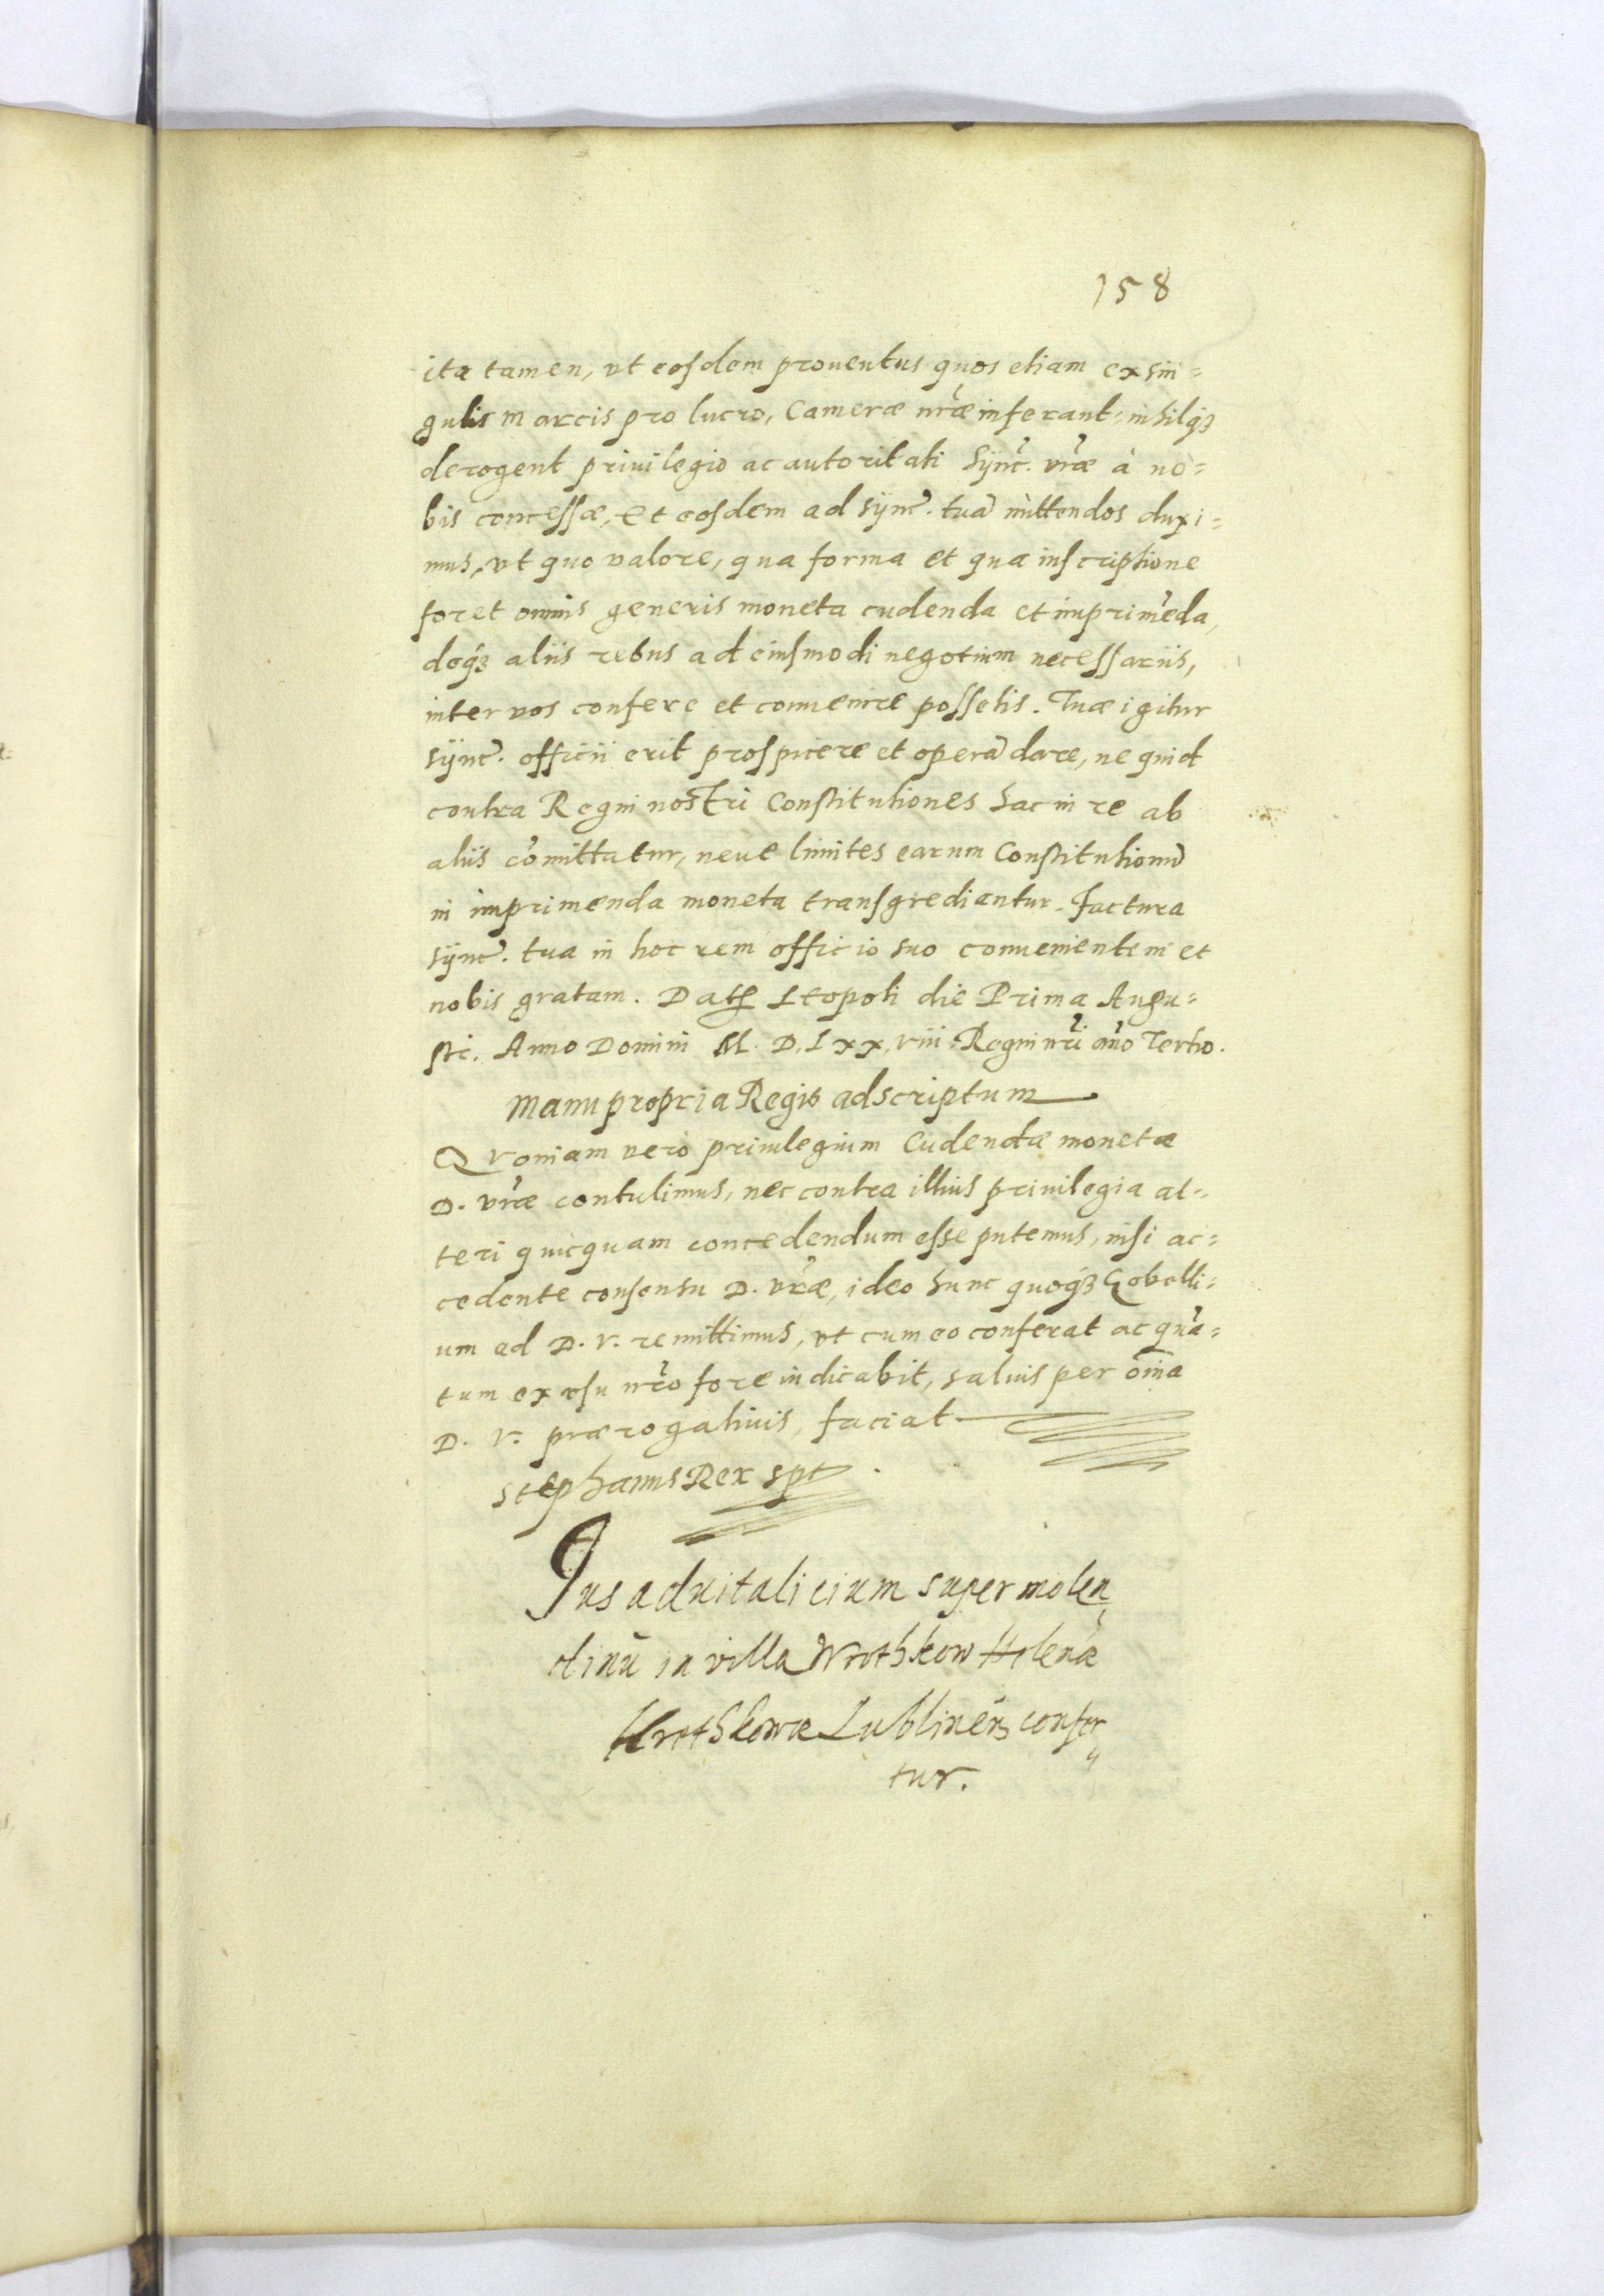 158
ita tamen, vt eosdem prouentus quos etiam ex sin=
gulis marcis pro lucro, Camerae nr̃ae inferant: nihilq3
derogent priuilegio ac autoritati Sync̃. vr̃ae à no=
bis concessae, Et eosdem ad sync̃. tuã mittendos duxi=
mus, vt quo valore, qua forma et qua inscriptione
foret omnis generis moneta cudenda et imprimẽda,
deq3 aliis rebus ad eiusmodi negotium necessariis,
inter vos confere et conuenire possetis. Tuae igitur
sync̃. officii erit prospicere et operã dare, ne quid
contra Regni nostri Constitutiones hac in re ab
aliis cõmittatur, neue limites earum Constitutionũ
in imprimenda moneta transgrediantur. factura
sync̃. tua in hoc rem officio suo conuenientem et
nobis gratam. Dat Leopoli die Prima Augu=
sti. Anno Domini M. D. Lxx. viii. Regni nr̃i ãno Tertio.
Manu propria Regis adscriptum
Qvoniam verò priuilegium Cudendae monetae
D. vr̃ae contulimus, nec contra illius priuilegia al=
teri quicquam concedendum esse putemus, nisi ac=
cedente consensu D. vr̃ae, ideo hunc quoq3 Gobelli=
um ad D. V. remittimus, vt cum eo conferat ac quã=
tum ex vsu nr̃o fore iudicabit, saluis per õina
D. V. praerogatiuis, faciat
Stephanus Rex spt
Jus aduitalicium super molen
dinũ in villa Wrothkow Helenae
Wrothkowae Lublineñ confer
tur.